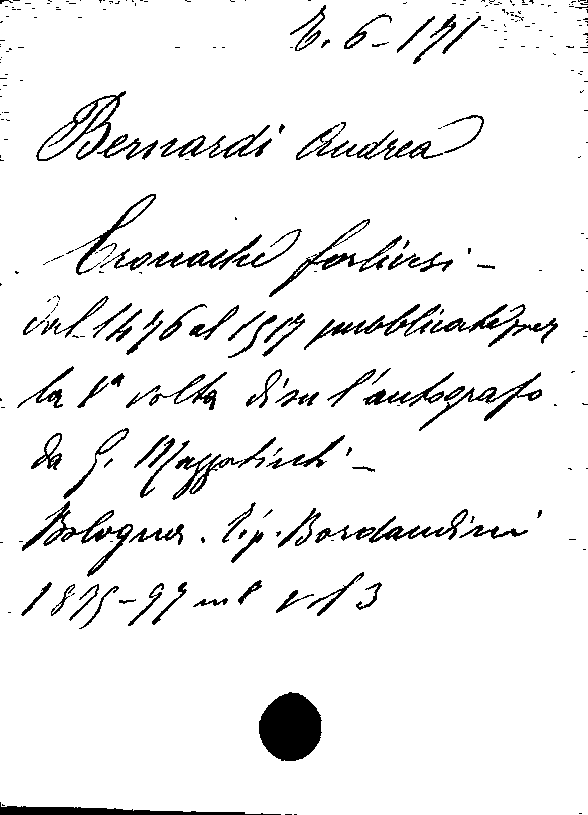 E. 6-171
Bernardi Andrea
Cronache forlivesi -
dal 1476 al 1517 pubblicate per
la 1ª volta di su l'autografo
da G. Mazzatinti -
Bologna. Tip. Bordandini
1895-97 in 8 vol 3